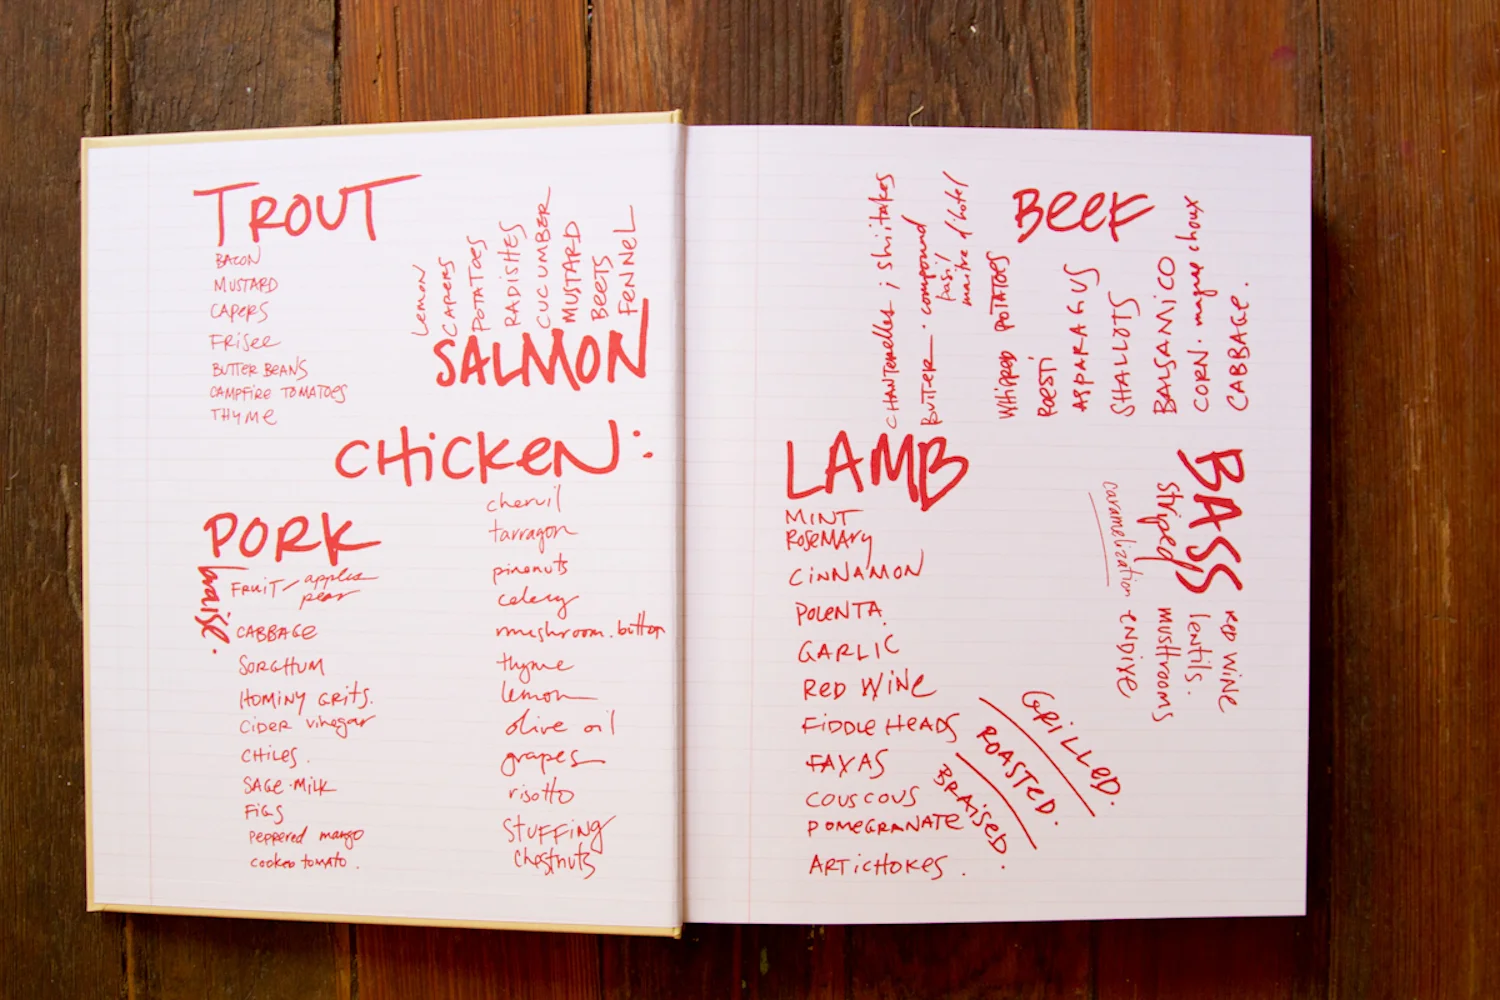 TROUT
BACON
MUSTARD
CAPERS
FRISEE
BUTTER BEANS
CAMPFIRE TOMATOES
THYME
LEMON
CAPERS
POTATOES
RADISHES
CUCUMBER
MUSTARD
BEETS
FENNEL
SALMON
CHICKEN:
chervil
tarragon
pinenuts
celery
mushroom. button
thyme
lemon
olive oil
grapes
risotto
STUFFING
chestnuts
PORK
braise.
FRUIT/apples
pear
CABBAGE
SORGHUM
HOMINY GRITS.
CIDER vinegar
CHILES.
SAGE · MILK
FIGS
PEPPERED mango
COOKED tomato.
BEEF
CHANTERELLES ; shiitakes
BUTTER · compound
basil
maitre d'hotel
WHIPPED POTATOES
ROESTI
ASPARAGUS
SHALLOTS
BALSAMICO
CORN · maque choux
CABBAGE.
LAMB
MINT
ROSEMARY
CINNAMON
POLENTA
GARLIC
RED WINE
FIDDLEHEADS
FAVAS
COUSCOUS
POMEGRANATE
ARTICHOKES.
GRILLED.
ROASTED.
BRAISED.
BASS
striped
RED WINE
lentils.
MUSHROOMS
caramelization
ENDIVE